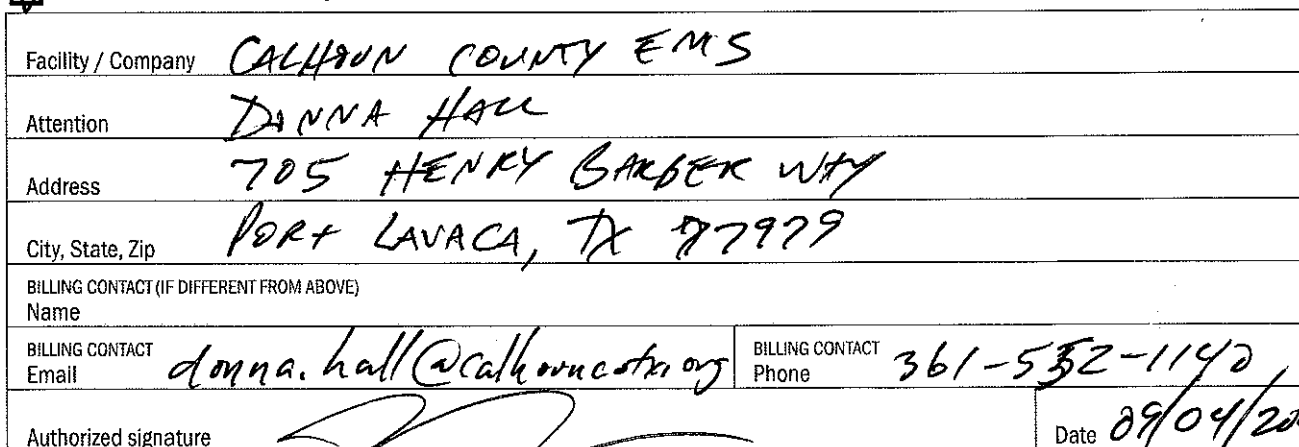 Facility / Company CALHOUN COUNTY EMS
Attention DONNA HALL
Address 705 HENRY BARBER WAY
City, State, Zip PORT LAVACA, TX 77979
BILLING CONTACT (IF DIFFERENT FROM ABOVE)
Name
BILLING CONTACT
Email donna.hall@calhouncotx.org
BILLING CONTACT
Phone 361-552-1140
Authorized signature
Date 09/04/20